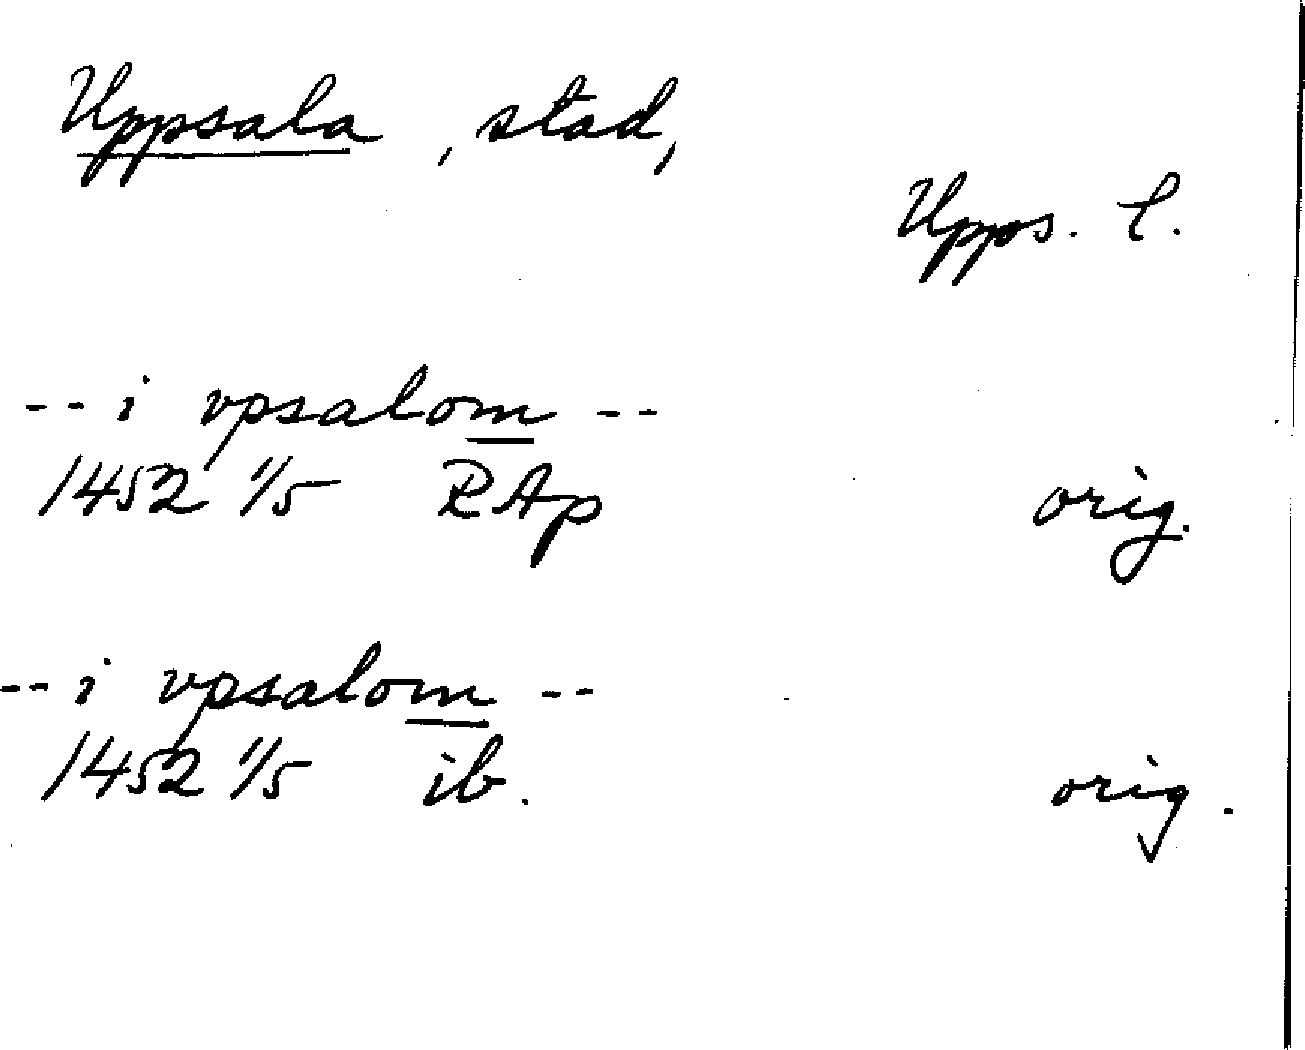 Uppsala, stad,
Upps. l.
-- i vpsalom --
1452 1/5 RAp orig.
-- i vpsalom --
1452 1/5 ib. orig.